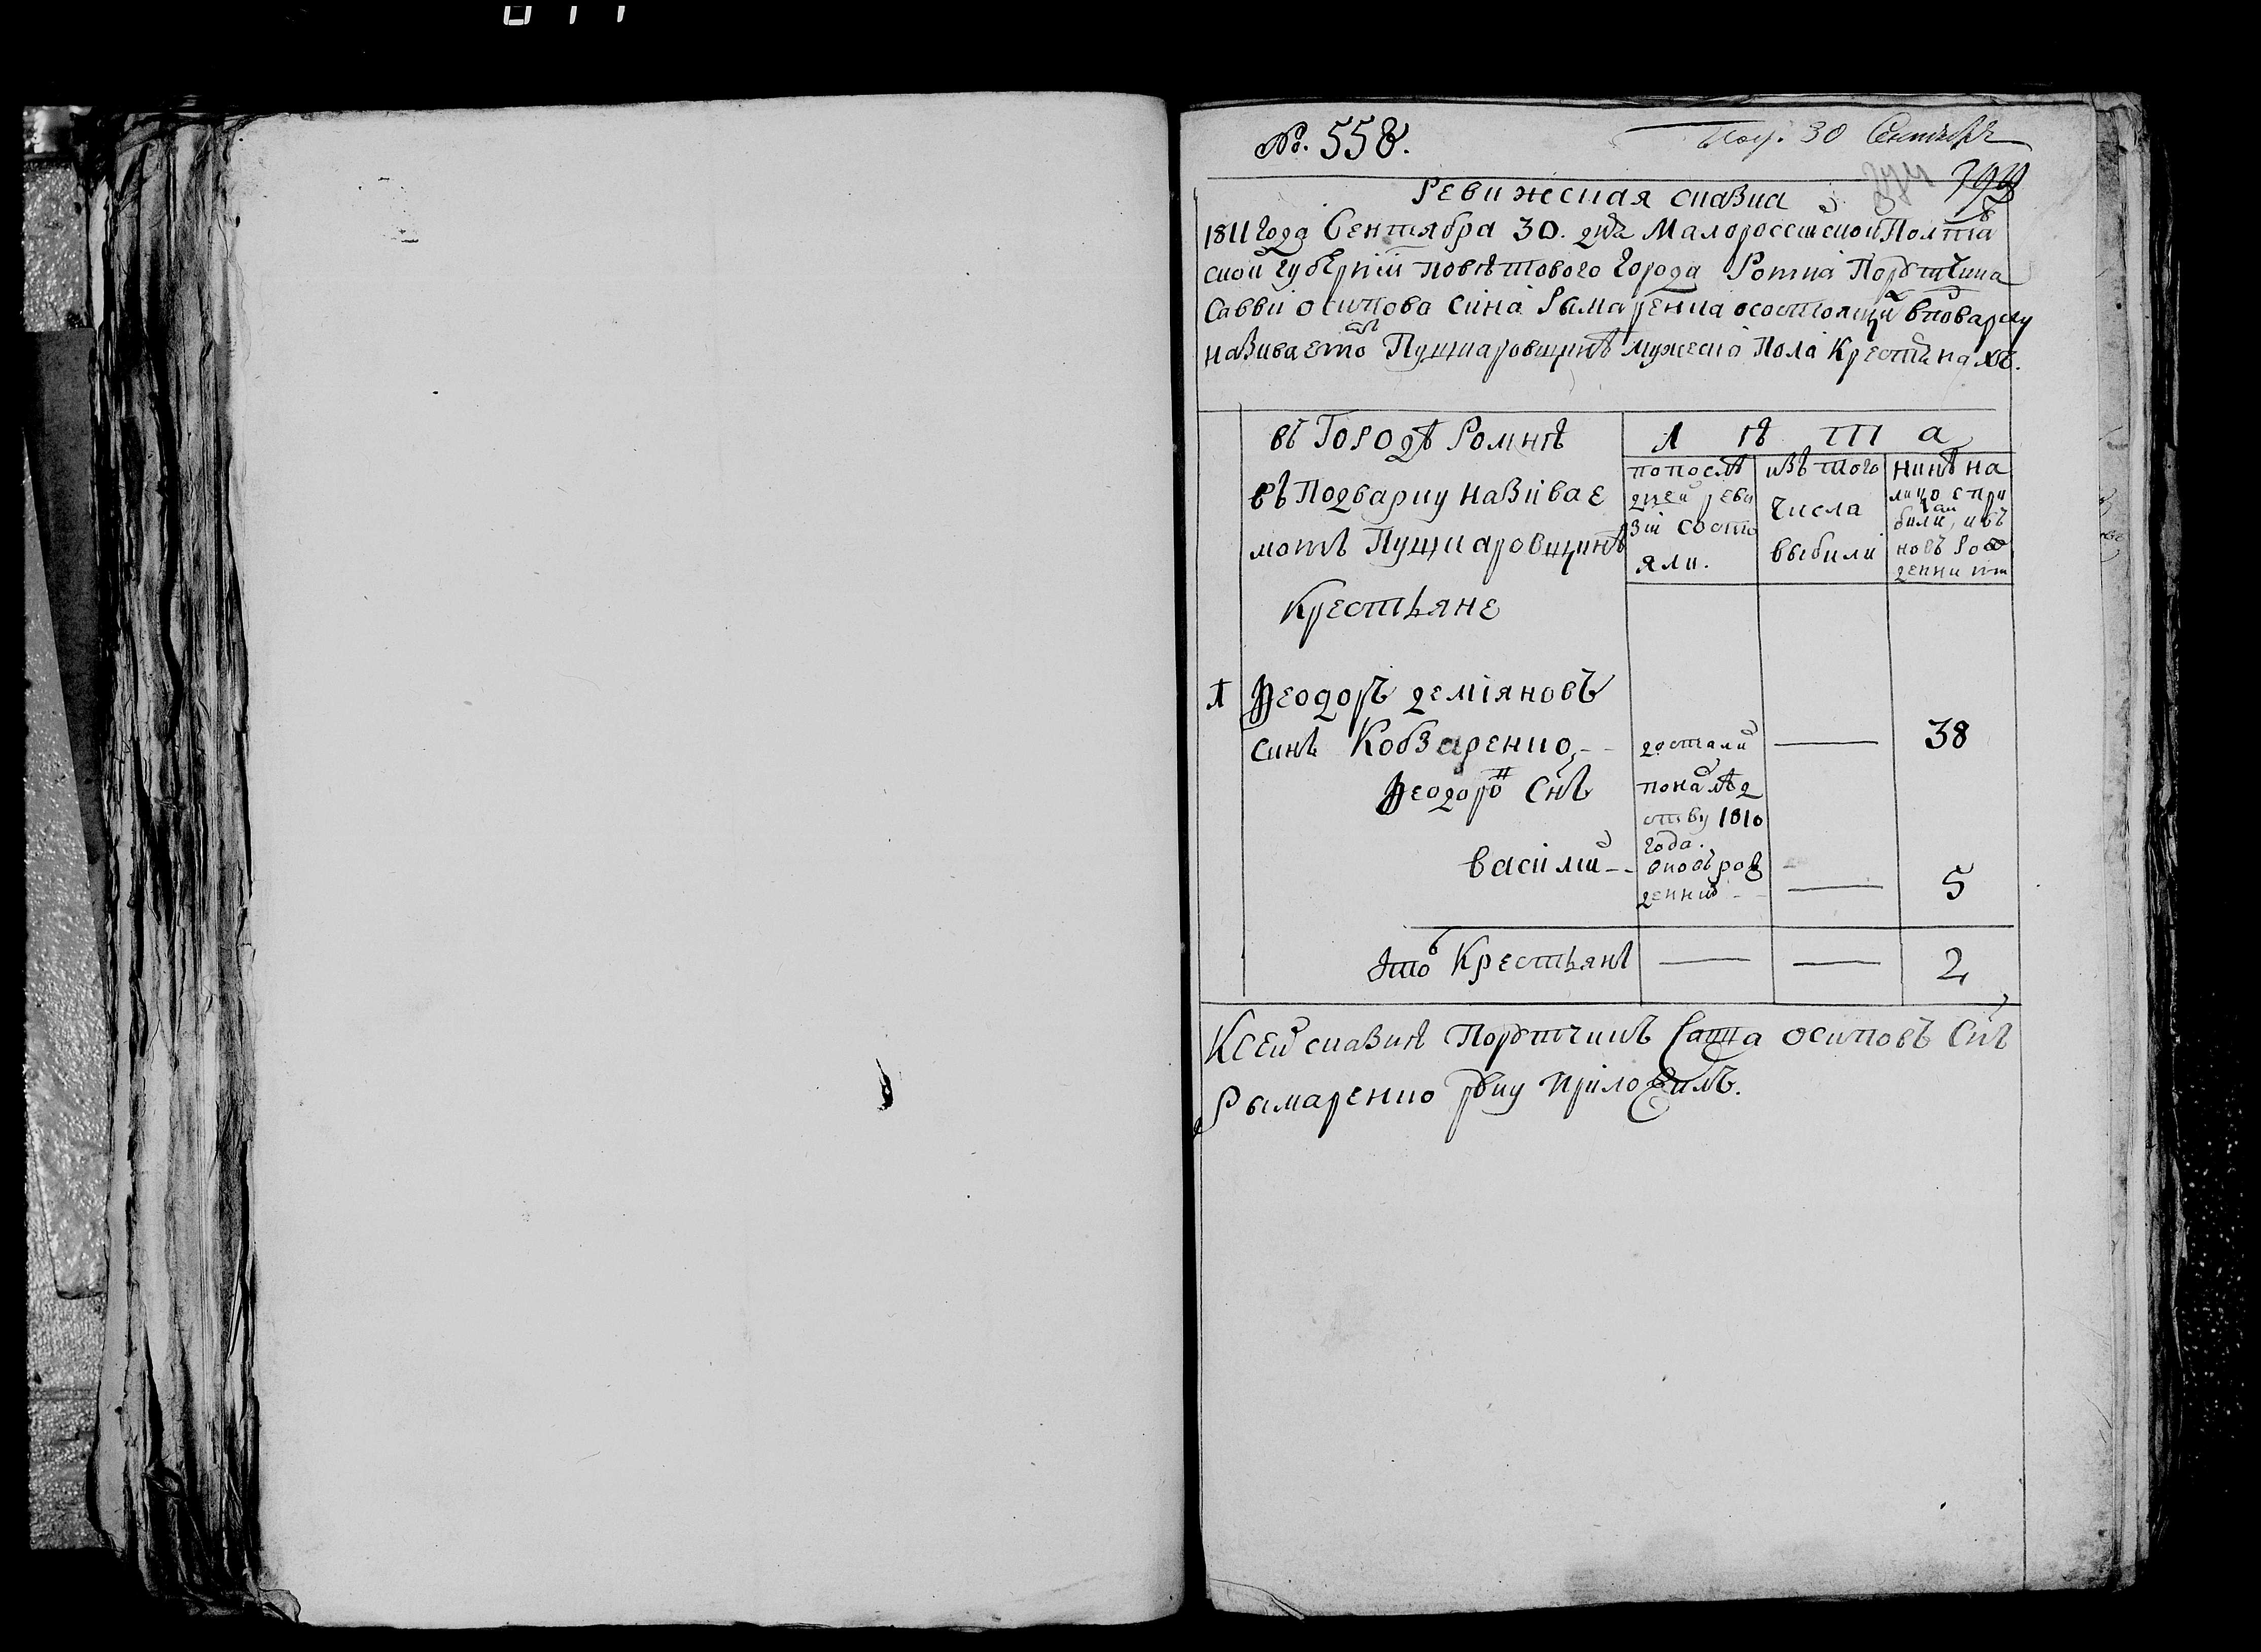 №. 558.
Пол. 30 Сентября
Ревижская сказка
1811 года Сентября 30. дня Малоросейской Полтав
ской губерніи повѣтового города Ромна Порутчика
Саввы Осипова сина Рымаренка о состоящих в подварку
називаемомъ Пушкаровщинѣ мужеска пола крестянахъ.
въ Городѣ Ромнѣ
въ Подварку називае
момъ Пушкаровщинѣ
Крестьяне
Л ѣ т а
по послѣ
дней реви
зіи состо
яли.
изъ того
числа
выбили
нинѣ на
лицо с при
билими, и въ
новъ рож
денними
1 Феодоръ Деміяновъ
синъ Кобзаренко
досталися
по наслѣд
ству 1810
года.
38
Феодоров Снъ
Василий
вновъ рож
денний
5
Итого Крестьянъ
2
К сей сказкѣ Порутчикъ Савва Осиповъ Снъ
Рымаренко руку приложилъ.